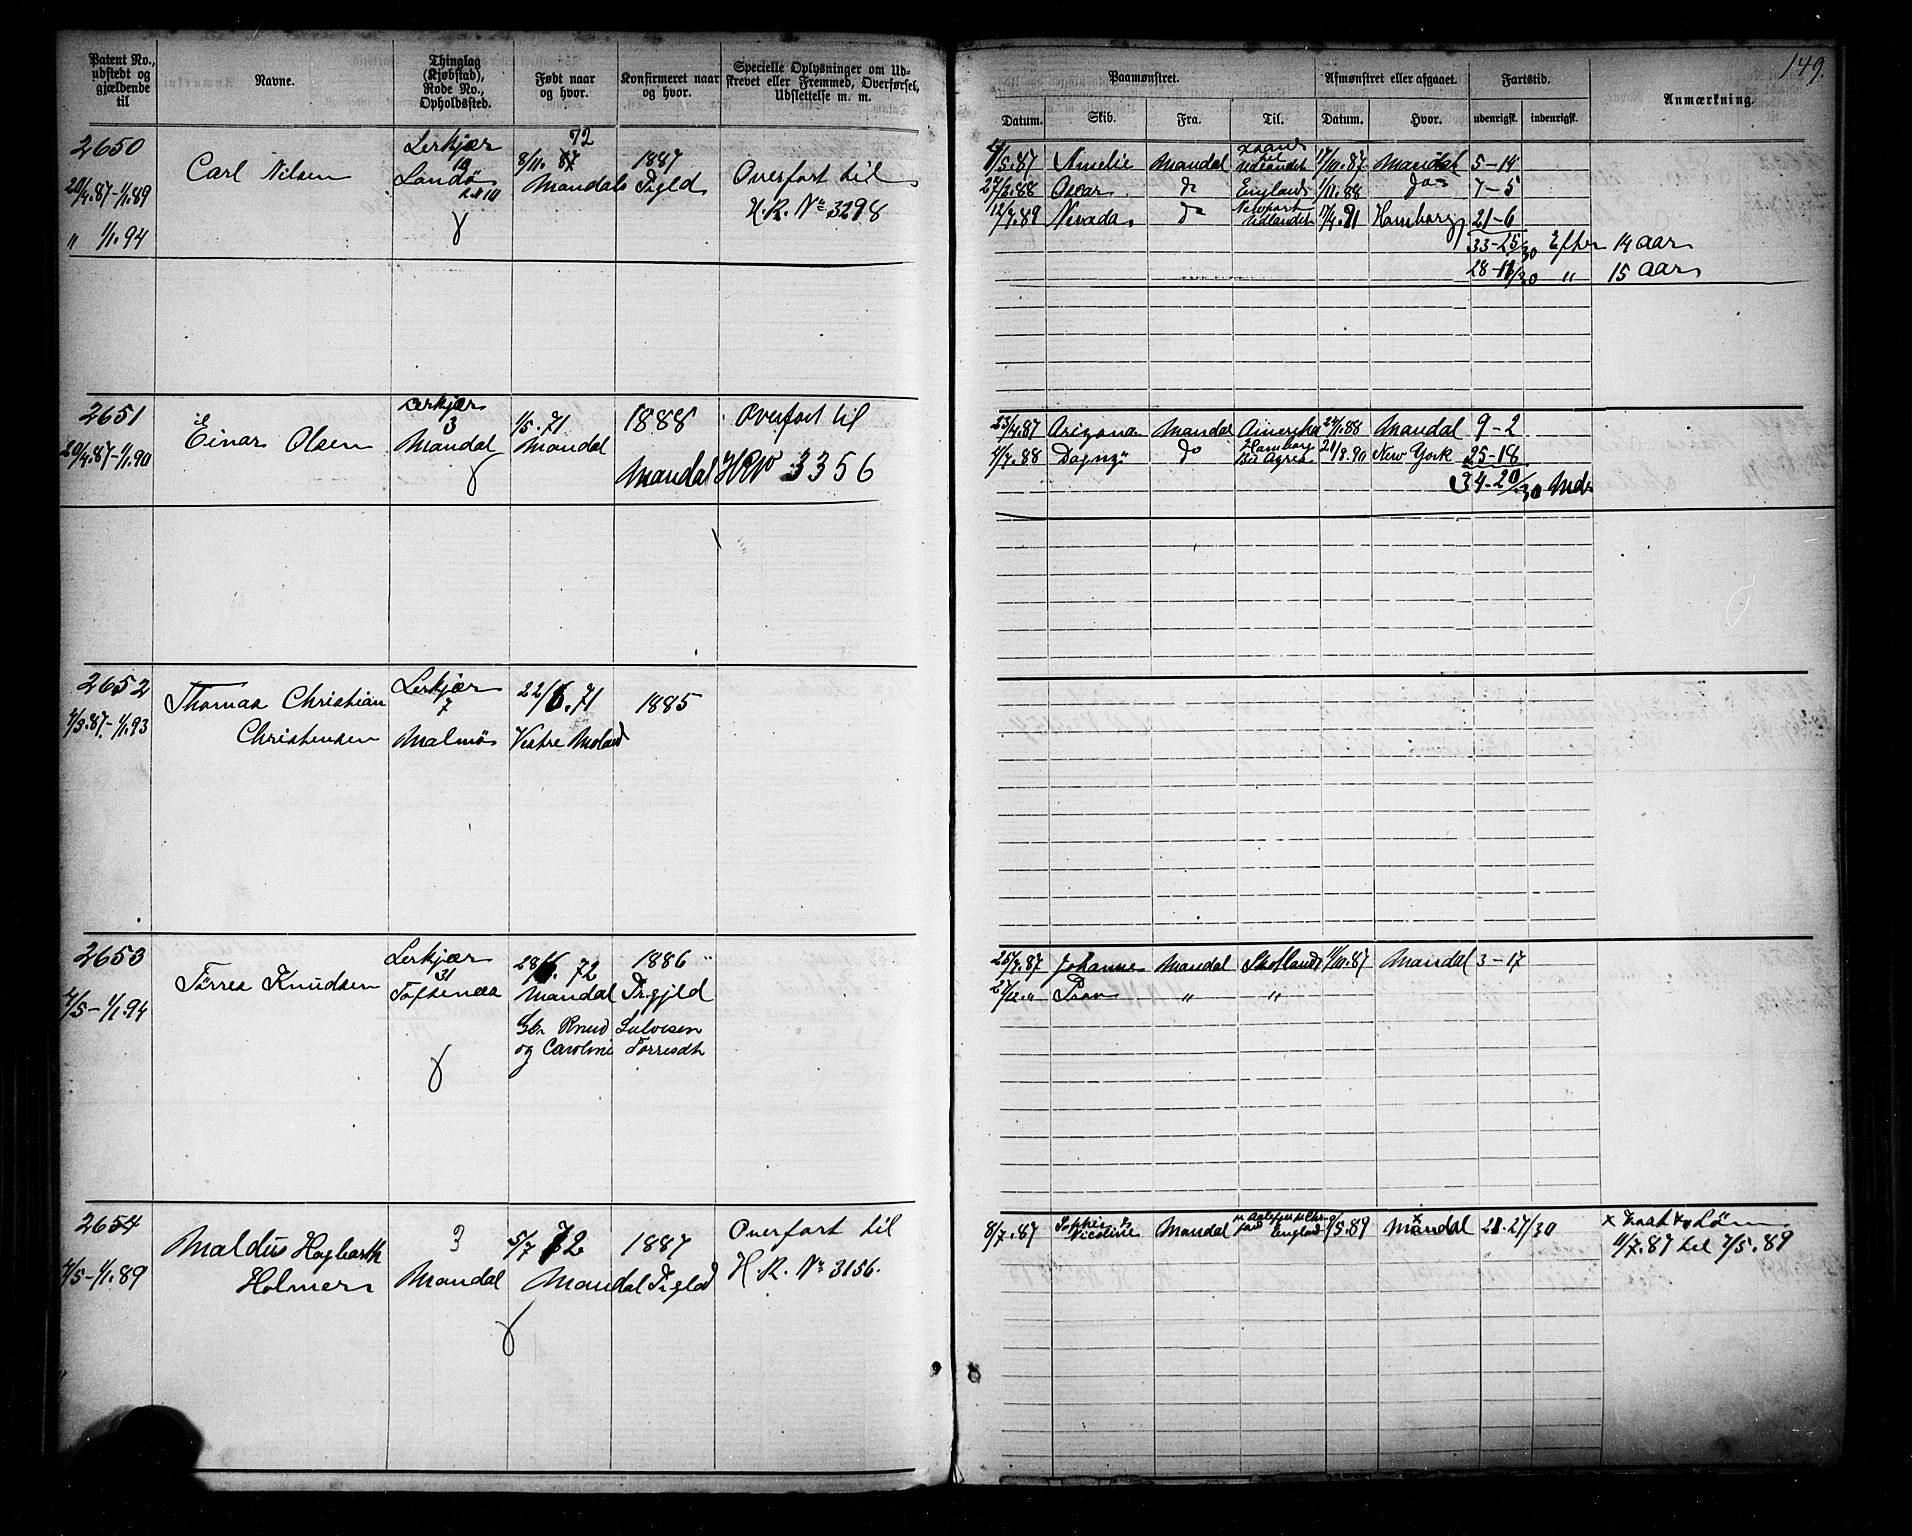 149.
Patent No., udstedt og gjældende til
Navne.
Thinglag (Kjøbstad), Rode No., Opholdssted.
Født naar og hvor.
Konfirmeret naar og hvor.
Specielle Oplysninger om Udskrevet eller Fremmed, Overførsel, Udslettelse m. m.
Paamønstret.
Afmønstret eller afgaaet.
Fartstid.
Anmærkning.
Datum. Skib. Fra. Til. Datum. Hvor. udenrigsk. indenrigsk.
2650
20/4.87-1/1.89
" 1/1.94
Carl Nilsen
Lerkjær
19
Landø
72
8/11. 87
Mandal
1887
Trgld
Overført til
H.R. No 3298
/5.87 Amelie Mandal Udlandet 17/10.87 Mandal 5-14
27/3.88 Oscar do England 1/11.88 do 7-5
12/7.89 Nevada do Newport Udlandet 17/4.91 Hamborg 21-6
33-25/30 Efter 14 aar
28-18/30 " 15 aar
2651
20/4.87-1/1.90
Einar Olsen
Lerkjær
3
Mandal
1/5.71
Mandal
1888
Mandal
Overført til
HR No 3356
23/4.87 Arizona Mandal Amerika 27/1.88 Mandal 9-2
4/7.88 Dagny do Hamborg 21/8.90 New York 25-18
34-20/30 Mdr
2652
4/5.87-1/1.93
Thomas Christian
Christensen
Lerkjær
7
Malmø
22/6.71
Vestre Moland
1885
2653
4/5-1/1.94
Tørres Knudsen
Lerkjær
31
Toftenæs
28/6.72
Mandal
1886
Trgjld
Sn Knud Salvesen
og Caroline Torresdtr
25/7.87 Johanne Mandal Skotland 11/10.87 Mandal 3-17
27/12." Prøv " "
2654
4/5-1/1.89
Maldus Hagbarth
Holmer
3
Mandal
5/7 72
Mandal
1887
Trgld
Overført til
H.R. No 3156.
8/7.87 Sophie Nicoline Mandal England /5.89 Mandal 21.27/30
11/7.87 til 7/5.89